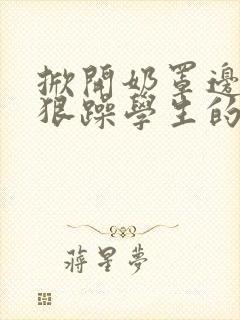 掀開奶罩邊
狠躁學生的
蔣星夢